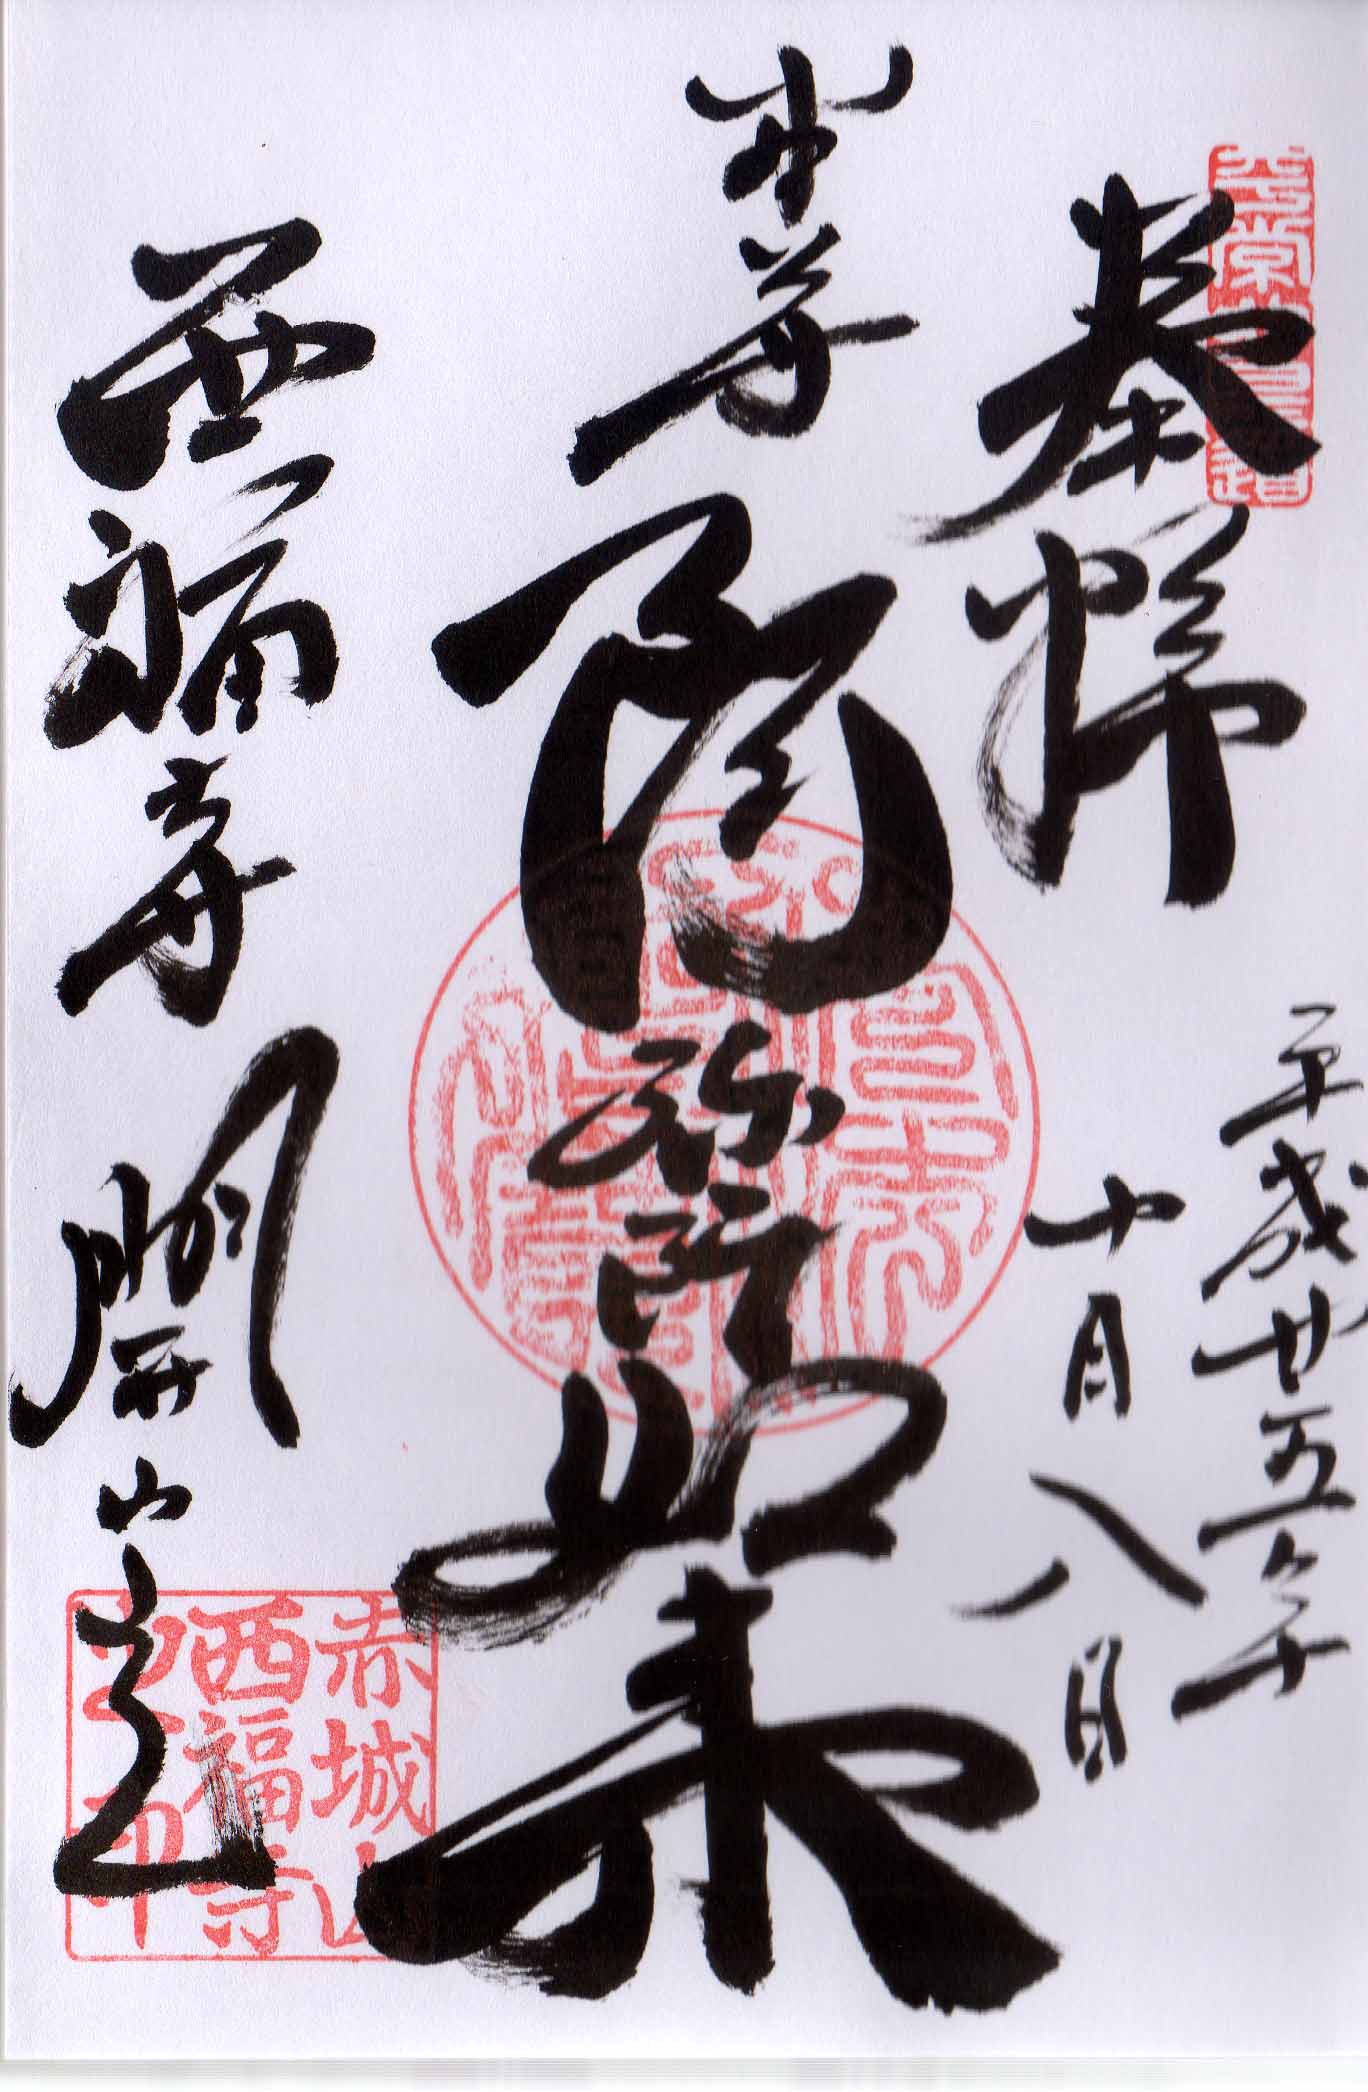 奉拝
平成廿五年
十月八日
本尊
阿弥陀如来
西福寺
開山堂
赤城山
西福寺